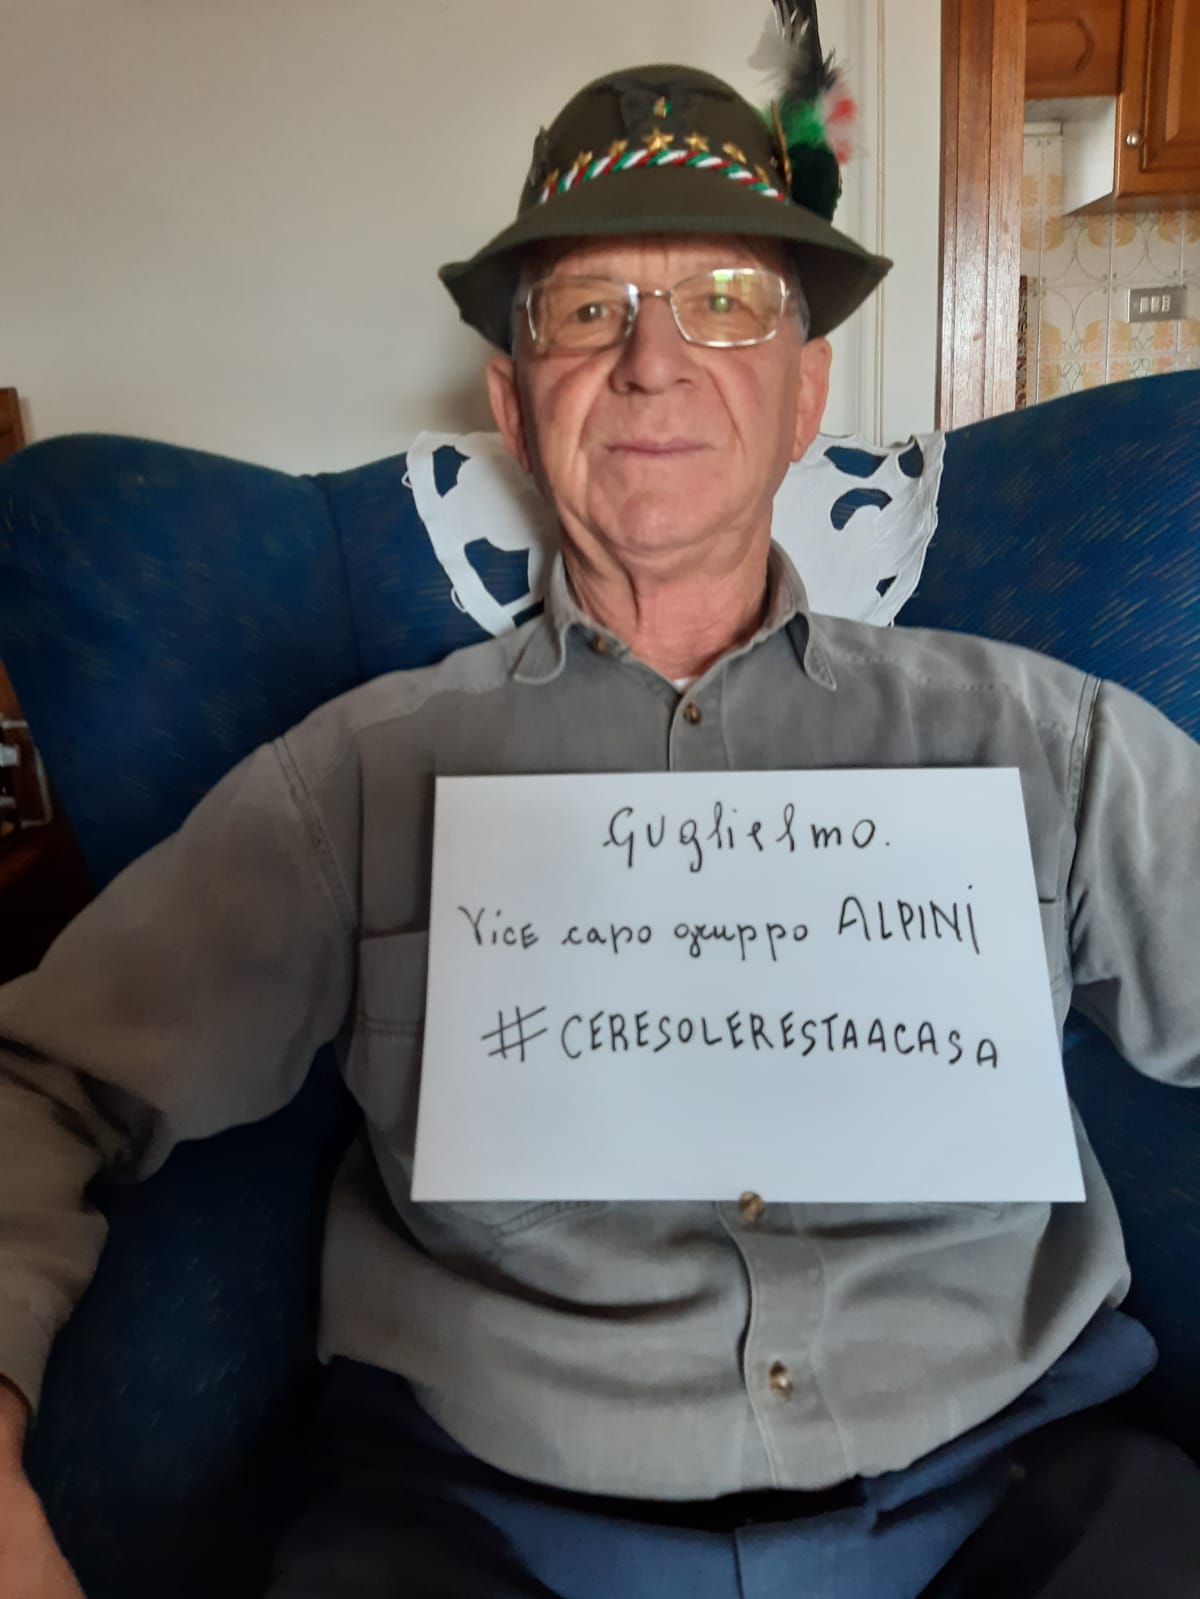 Guglielmo.
Vice capo gruppo ALPINI
#CERESOLERESTAACASA